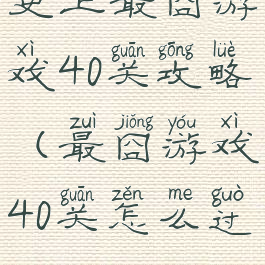 史上最囧游
xì guān gōng lüè
戏40关攻略
zuì jiǒng yóu xì
（最囧游戏
guān zěn me guò
40关怎么过